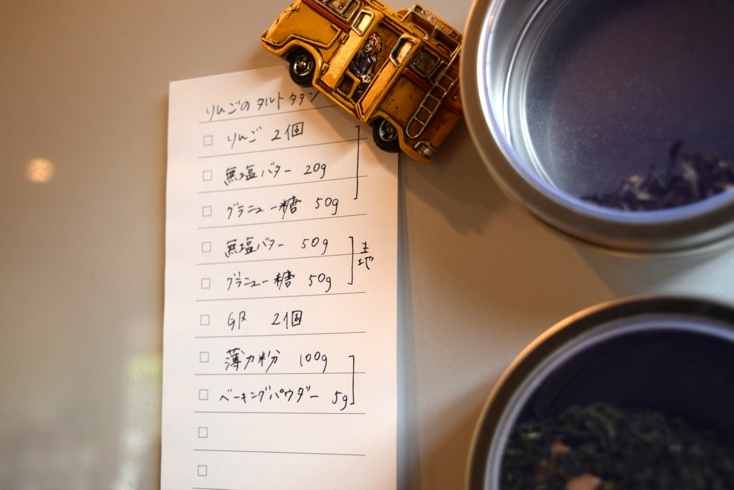 りんごのタルトタタン
りんご 2個
無塩バター 20g
グラニュー糖 50g
無塩バター 50g
グラニュー糖 50g
生地
2個
薄力粉 100g
ベーキングパウダー 5g